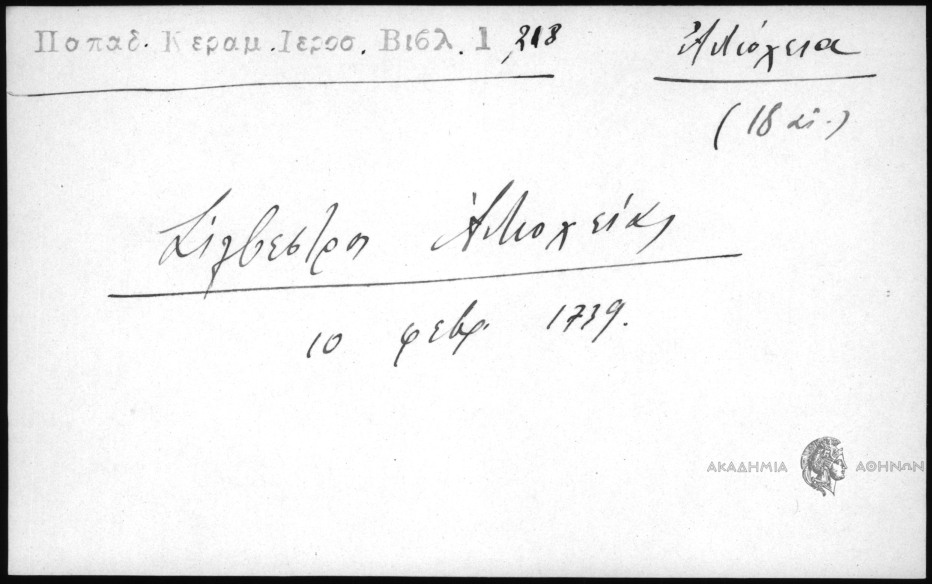 Παπαδ. Κεραμ. Ιεροσ. Βιβλ. 1, 218
Ἀντιόχεια
(18 αἰ.)
Σίλβεστρος Ἀντιοχείας
10 φεβρ. 1739.
ΑΚΑΔΗΜΙΑ ΑΘΗΝΩΝ